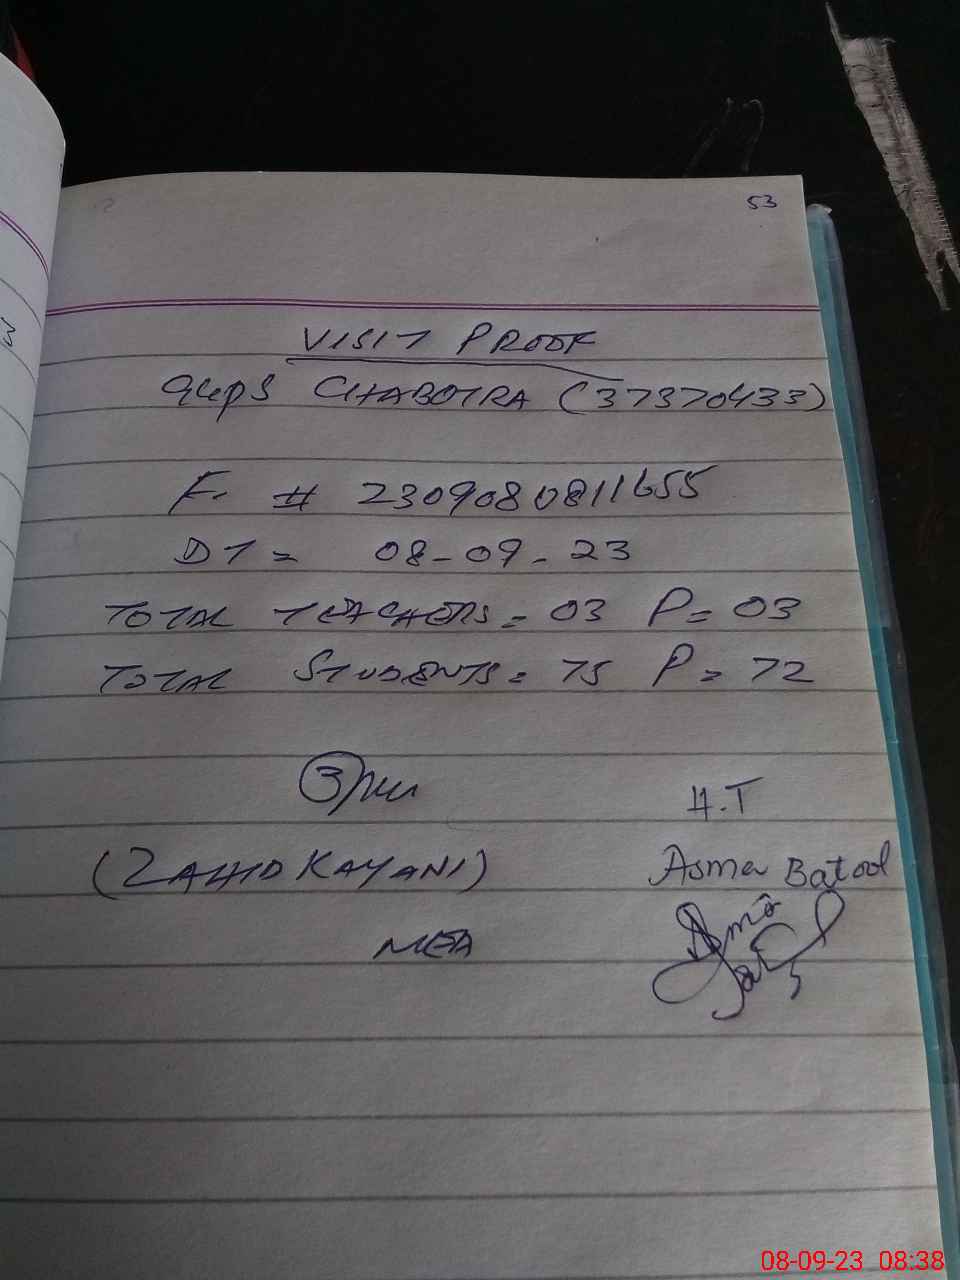 53
VISIT PROOF
GGPS CHABOTRA (37370433)
F. # 2309080811655
DT = 08-09-23
TOTAL TEACHERS = 03 P = 03
TOTAL STUDENTS = 75 P = 72
H.T
(ZAHID KAYANI)
Asma Batool
MEA
08-09-23 08:38